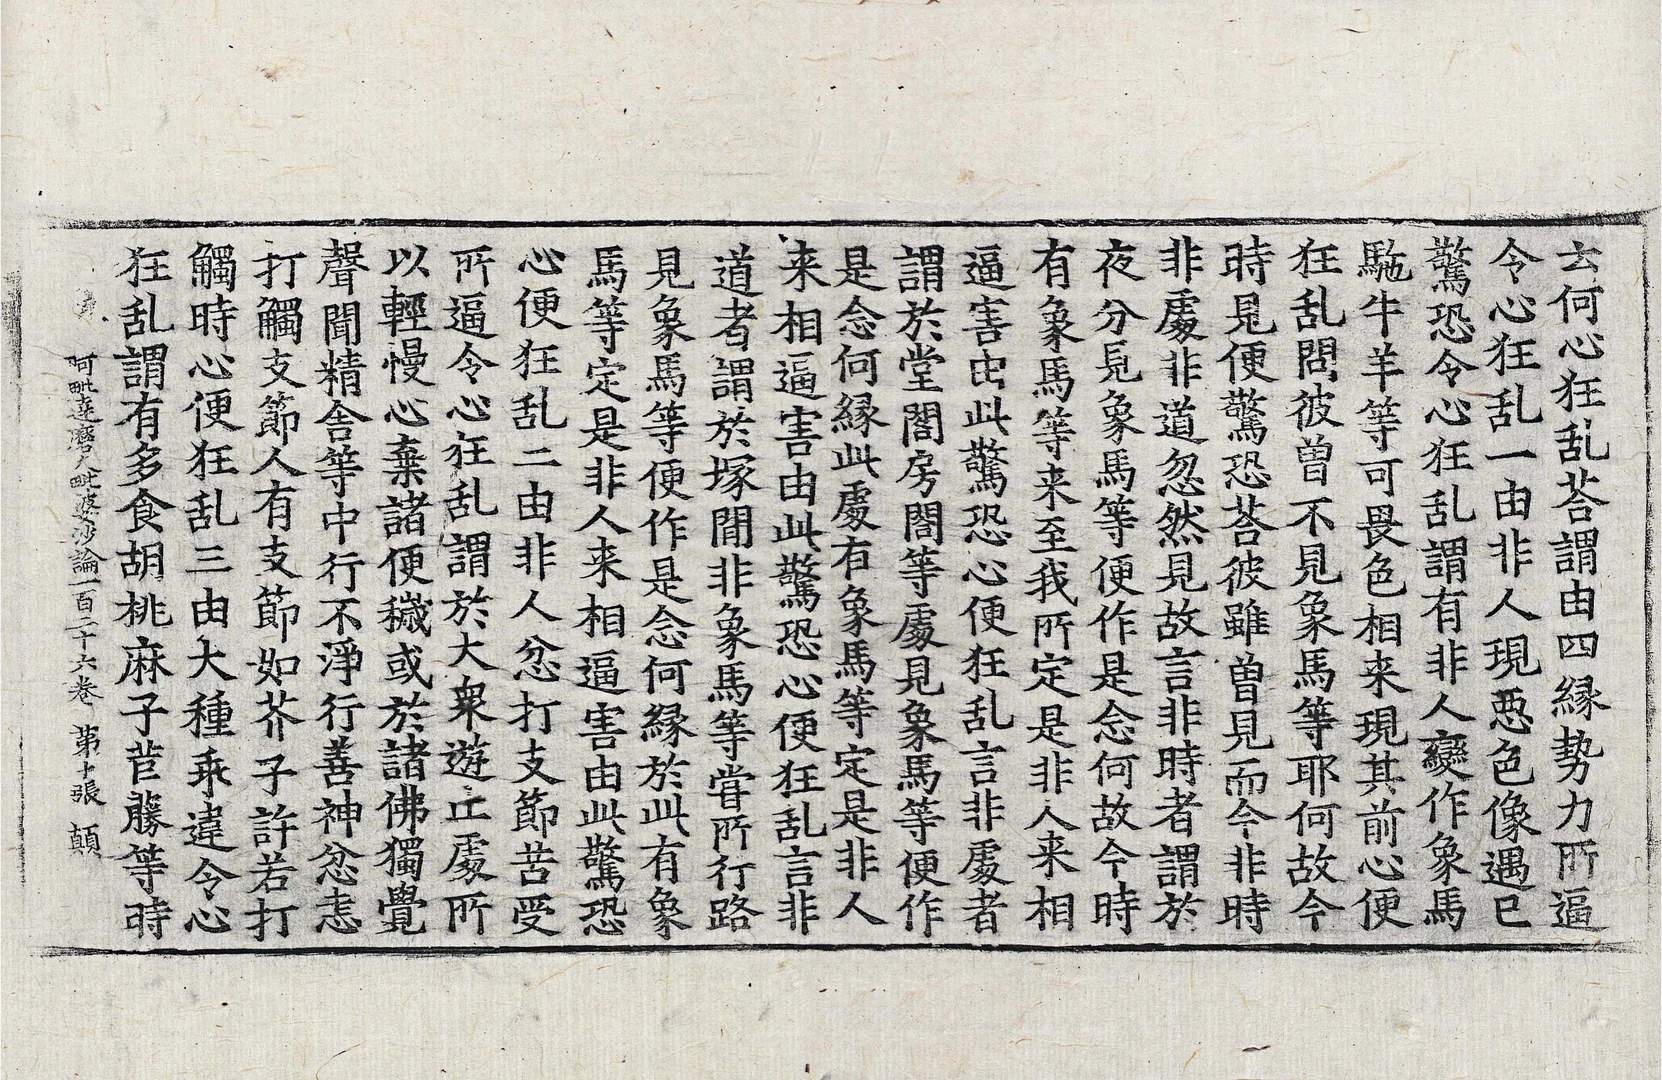 云何心狂乱荅謂由四縁勢力所逼
令心狂乱一由非人現惡色像遇已
驚恐令心狂乱謂有非人變作象馬
駞牛羊等可畏色相来現其前心便
狂乱問彼曾不見象馬等耶何故今
時見便驚恐荅彼雖曾見而今非時
非處非道忽然見故言非時者謂於
夜分見象馬等便作是念何故今時
有象馬等来至我所定是非人来相
逼害由此驚恐心便狂乱言非處者
謂於堂閣房閤等處見象馬等便作
是念何縁此處有象馬等定是非人
来相逼害由此驚恐心便狂乱言非
道者謂於塚間非象馬等甞所行路
見象馬等便作是念何縁於此有象
馬等定是非人来相逼害由此驚恐
心便狂乱二由非人忿打支節苦受
所逼令心狂乱謂於大衆遊止處所
以輕慢心棄諸便穢或於諸佛獨覺
聲聞精舍等中行不淨行善神忿恚
打觸支節人有支節如芥子許若打
觸時心便狂乱三由大種乖違令心
狂乱謂有多食胡桃麻子苣蕂等時
阿毗達磨大毗婆沙論一百二十六卷 第十張 顛